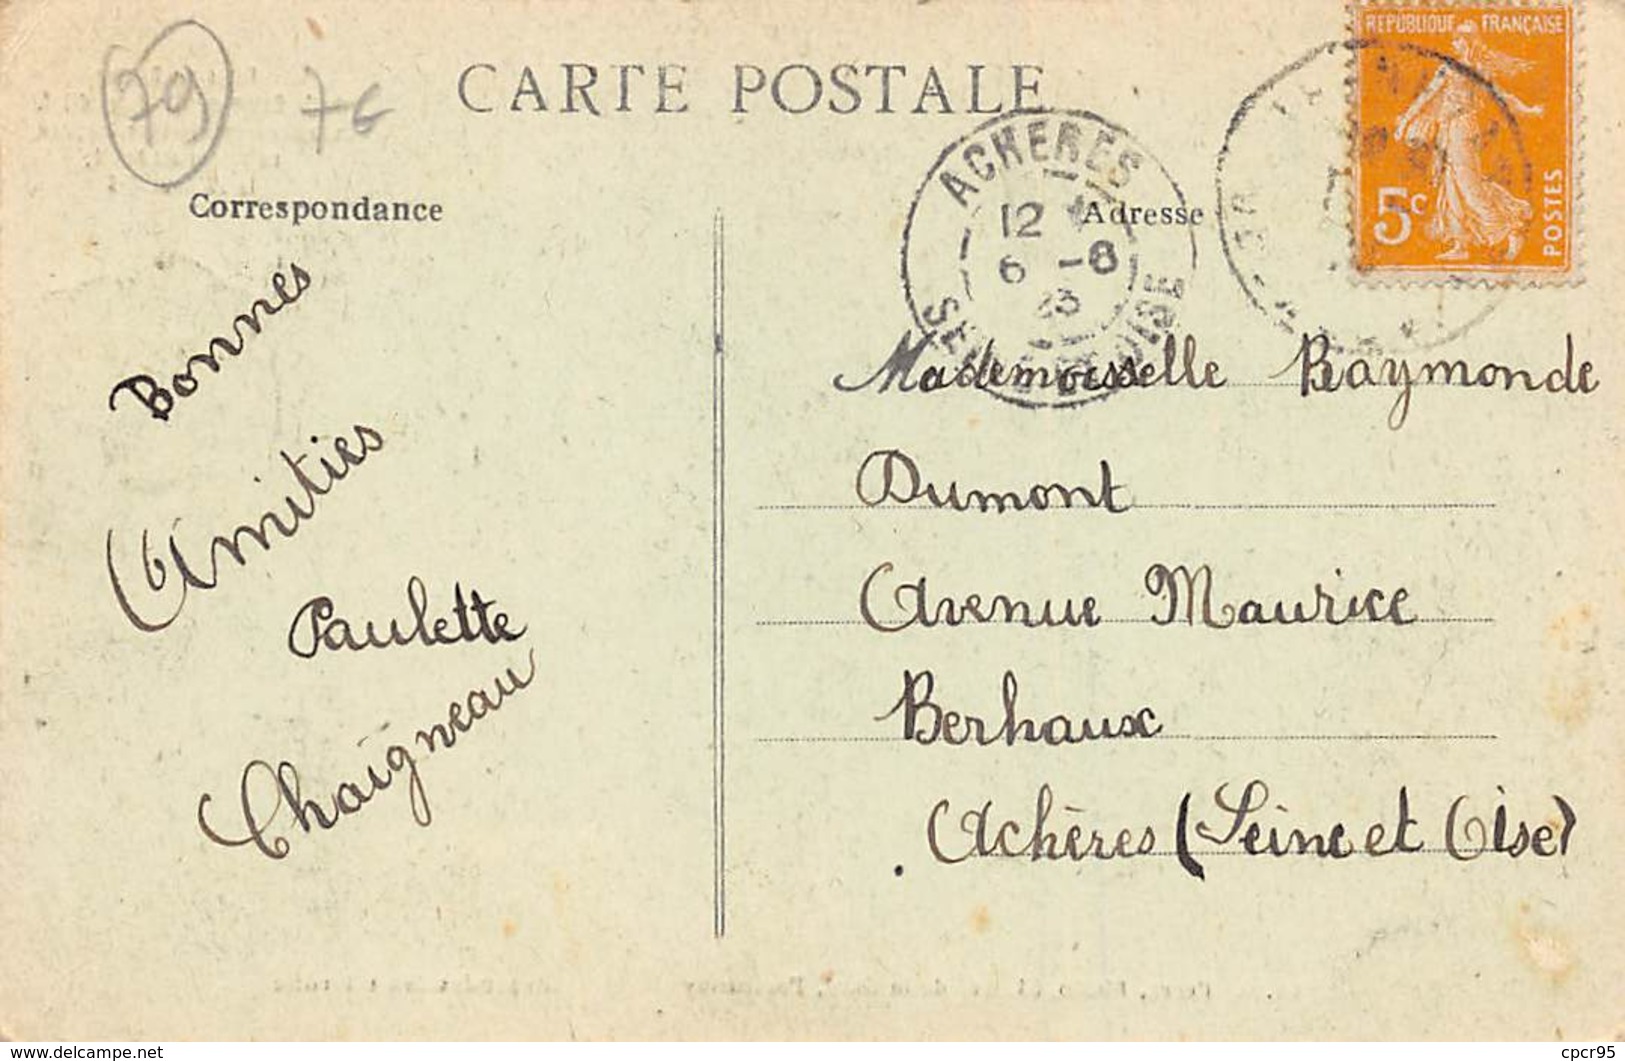 79
7€
CARTE POSTALE
REPUBLIQUE FRANÇAISE
5c
POSTES
ACHERES
12
6 -8
23
SEINE ET OISE
Correspondance
Adresse
Bonnes
Amitiés
Paulette
Chaigneau
Mademoiselle Raymonde
Dumont
Avenue Maurice
Berhaux
Achères (Seine et Oise)
delcampe.net
cpcr95